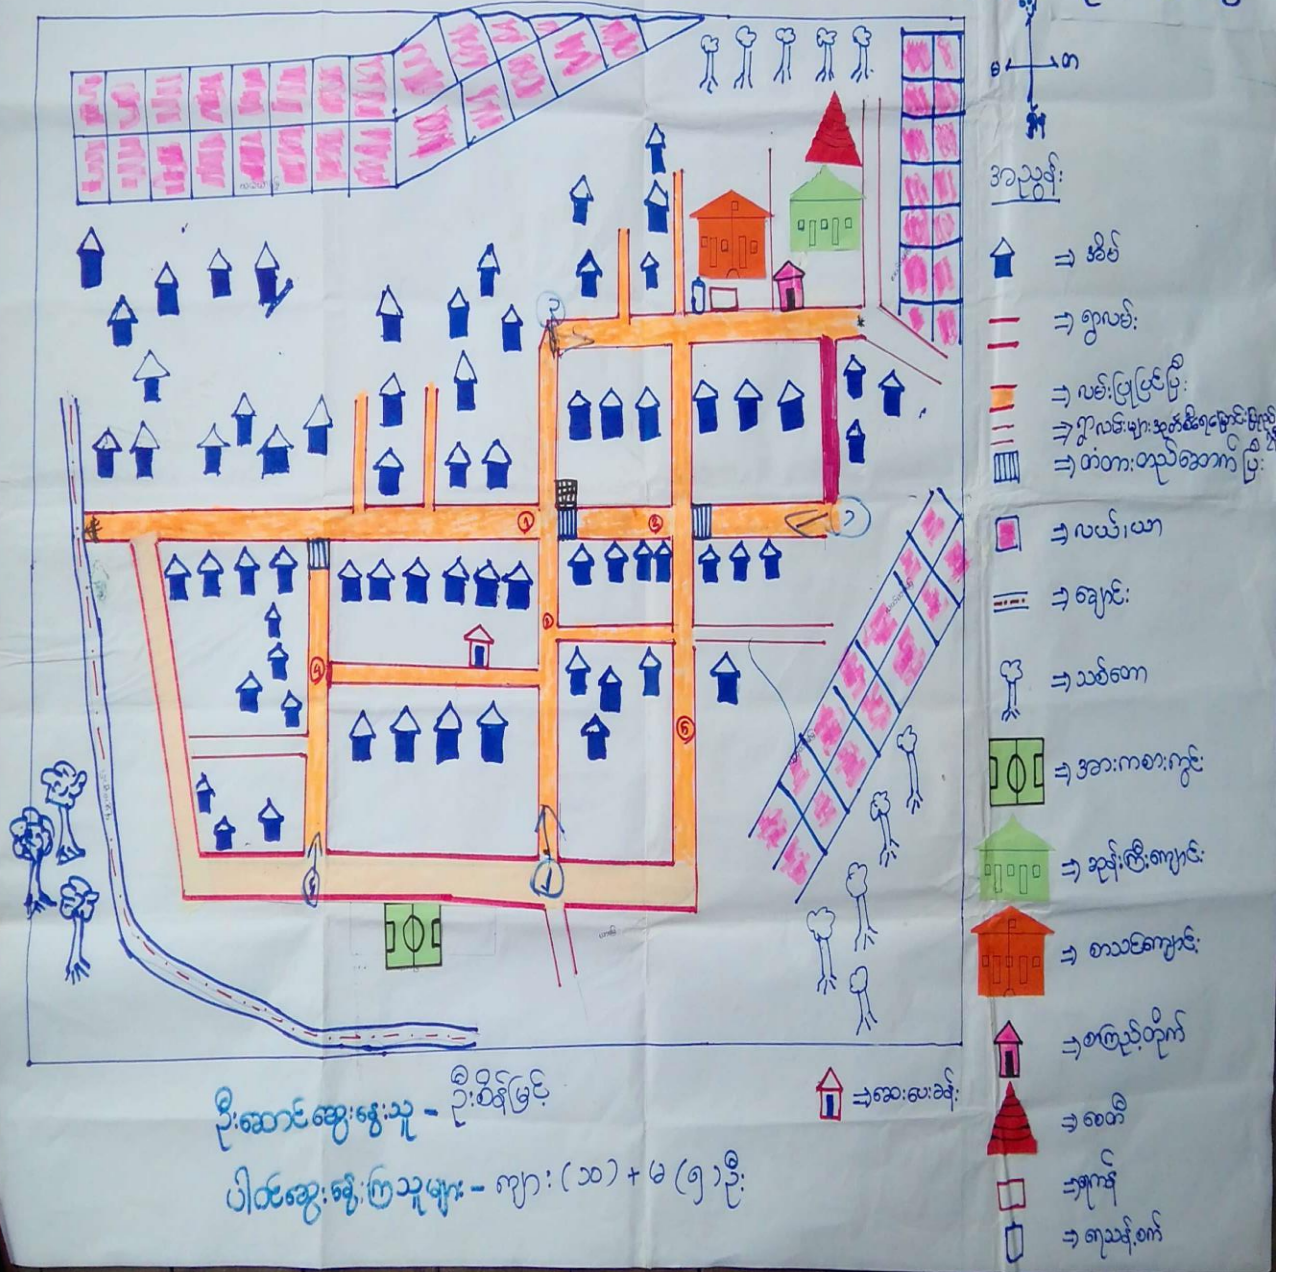 အညွှန်း
⇒ အိမ်
⇒ ရွာလမ်း
⇒ လမ်းပြုပြင်ပြီး
⇒ တံတားတည်ဆောက်ပြီး
⇒ လယ်၊ယာ
⇒ ချောင်း
⇒ သစ်တော
⇒ အားကစားကွင်း
⇒ ဘုန်းကြီးကျောင်း
⇒ စာသင်ကျောင်း
⇒ စာကြည့်တိုက်
⇒ စေတီ
⇒ ရေကန်
⇒ ရေသန့်စက်
⇒ ဆေးပေးခန်း
ဦးဆောင်ဆွေးနွေးသူ - ဦးစိန်မြင့်
ပါဝင်ဆွေးနွေးကြသူများ - ကျား (၁၀) + မ (၅) ဦး